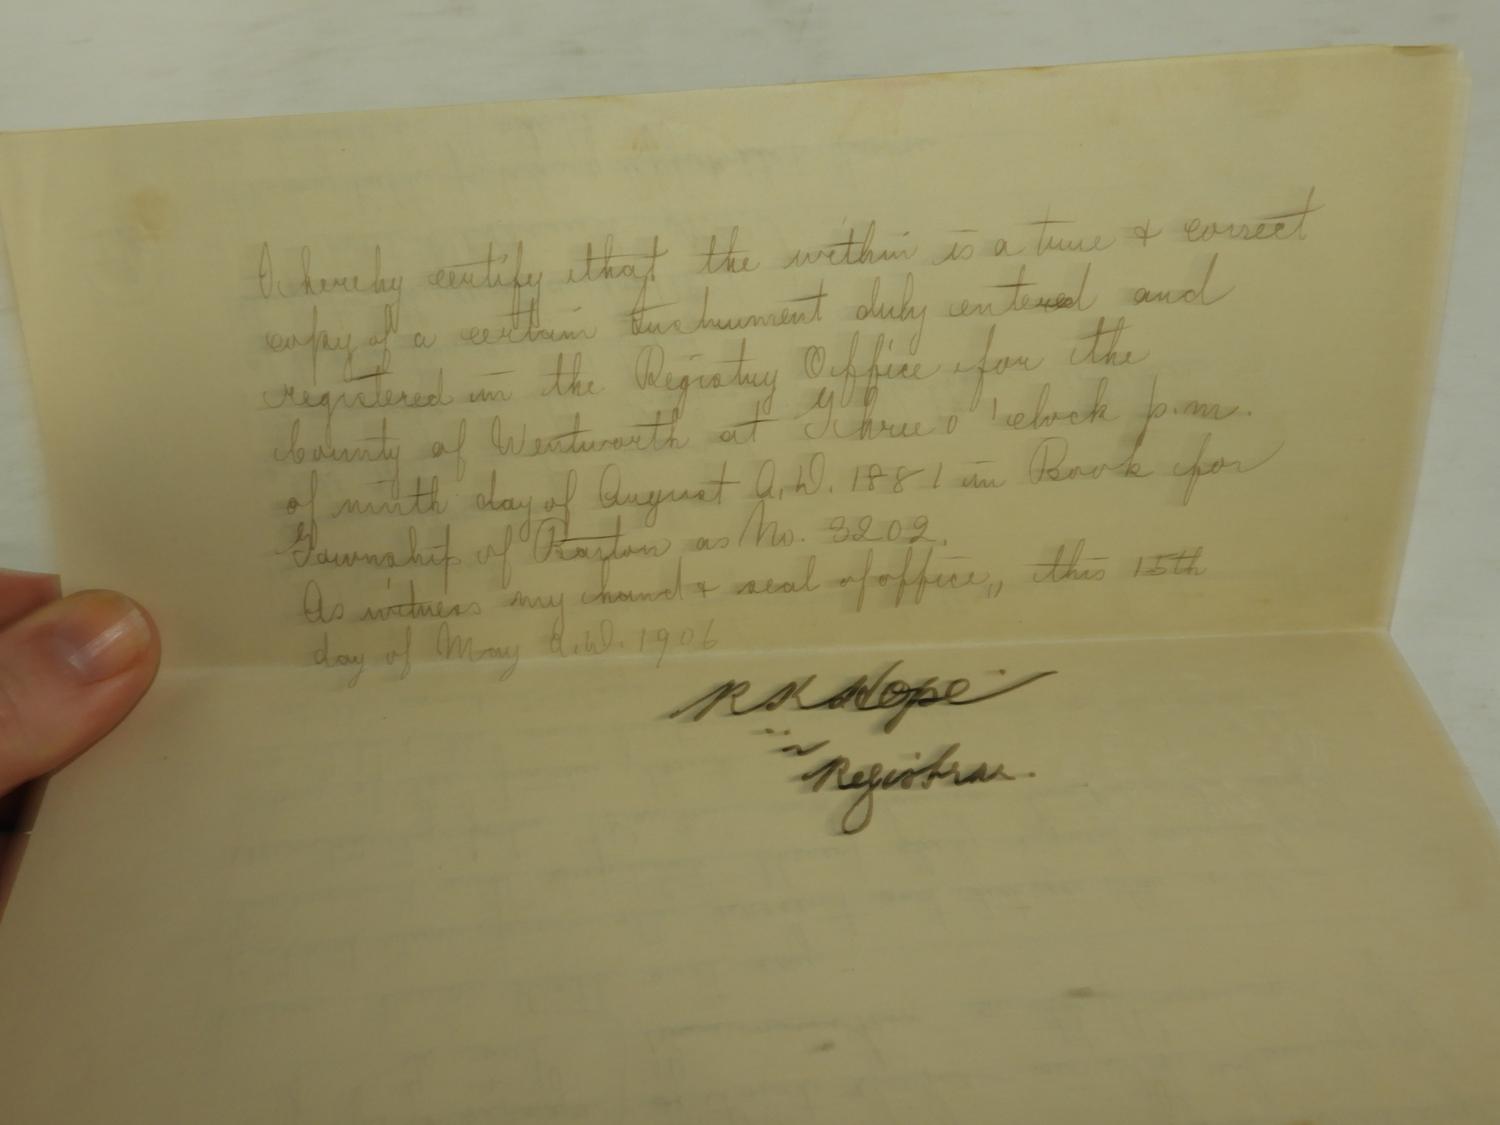 I hereby certify that the within is a true & correct
copy of a certain Instrument duly entered and
registered in the Registry Office for the
County of Wentworth at Three o'clock p.m.
of ninth day of August A.D. 1881 in Book for
Township of Barton as No. 3202.
As witness my hand & seal of office,, this 15th
day of May A.D. 1906
R K Hope
Registrar.